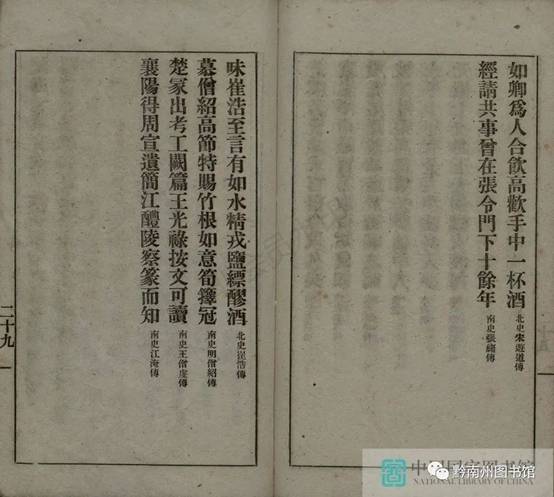 如卿爲人合飲高歡手中一杯酒 北史宋遊道傳
經請共事曾在張令門下十餘年 南史張緬傳
味崔浩至言有如水精戎鹽縹醪酒 北史崔浩傳
慕僧紹高節特賜竹根如意筍籜冠 南史明僧紹傳
楚冢出考工闕篇王光祿按文可讀 南史王僧虔傳
襄陽得周宣遺簡江醴陵察篆而知 南史江淹傳
二十九
中國國家圖書館
NATIONAL LIBRARY OF CHINA
黔南州图书馆